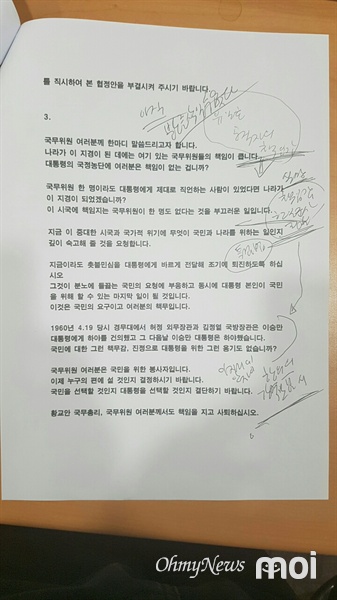 를 직시하여 본 협정안을 부결시켜 주시기 바랍니다.
3.
국무위원 여러분께 한마디 말씀드리고자 합니다.
나라가 이 지경이 된 데에는 여기 있는 국무위원들의 책임이 큽니다.
대통령의 국정농단에 여러분은 책임이 없습니까?
국무위원 한 명이라도 대통령에게 제대로 직언하는 사람이 있었다면 나라가
이 지경이 되었겠습니까?
이 시국에 책임지는 국무위원이 한 명도 없다는 것을 부끄러운 일입니다.
지금 이 중대한 시국과 국가적 위기에 무엇이 국민과 나라를 위하는 일인지
깊이 숙고해 줄 것을 요청합니다.
지금이라도 촛불민심을 대통령에게 바르게 전달해 조기에 퇴진하도록 하십
시오
그것이 분노에 들끓는 국민의 요청에 부응하고 동시에 대통령 본인이 국민
을 위해 할 수 있는 마지막 일이 될 것입니다.
이것은 국민의 요구이고 여러분의 책무입니다.
1960년 4.19 당시 경무대에서 허정 외무장관과 김정렬 국방장관은 이승만
대통령에게 하야를 건의했고 그 다음날 이승만 대통령은 하야했습니다.
국민에 대한 그런 책무감, 진정으로 대통령을 위한 그런 용기도 없습니까?
국무위원 여러분은 국민을 위한 봉사자입니다.
이제 누구의 편에 설 것인지 결정하시기 바랍니다.
국민을 선택할 것인지 대통령을 선택할 것인지 결단하기 바랍니다.
황교안 국무총리, 국무위원 여러분께서도 책임을 지고 사퇴하십시오.
OhmyNews
moi